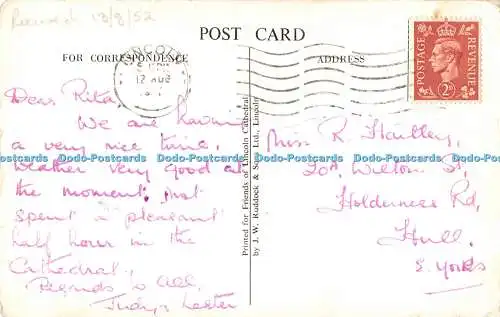 Received 13/8/52
POST CARD
FOR CORRESPONDENCE
ADDRESS
LINCOLN
12 AUG
POSTAGE
REVENUE
2D
Dear Rita,
We are having
a very nice time,
weather very good at
the moment, just
spent a pleasant
half hour in the
Cathedral,
Regards to all,
Judy & Lester
Printed for Friends of Lincoln Cathedral
by J. W. Ruddock & Sons, Ltd., Lincoln
Miss R Hartley,
Wilton St,
Holderness Rd,
Hull.
E. Yorks
Dodo-Postcards Dodo-Postcards Dodo-Postcards Dodo-Postcards Dodo-Postcards Dodo-Postcards